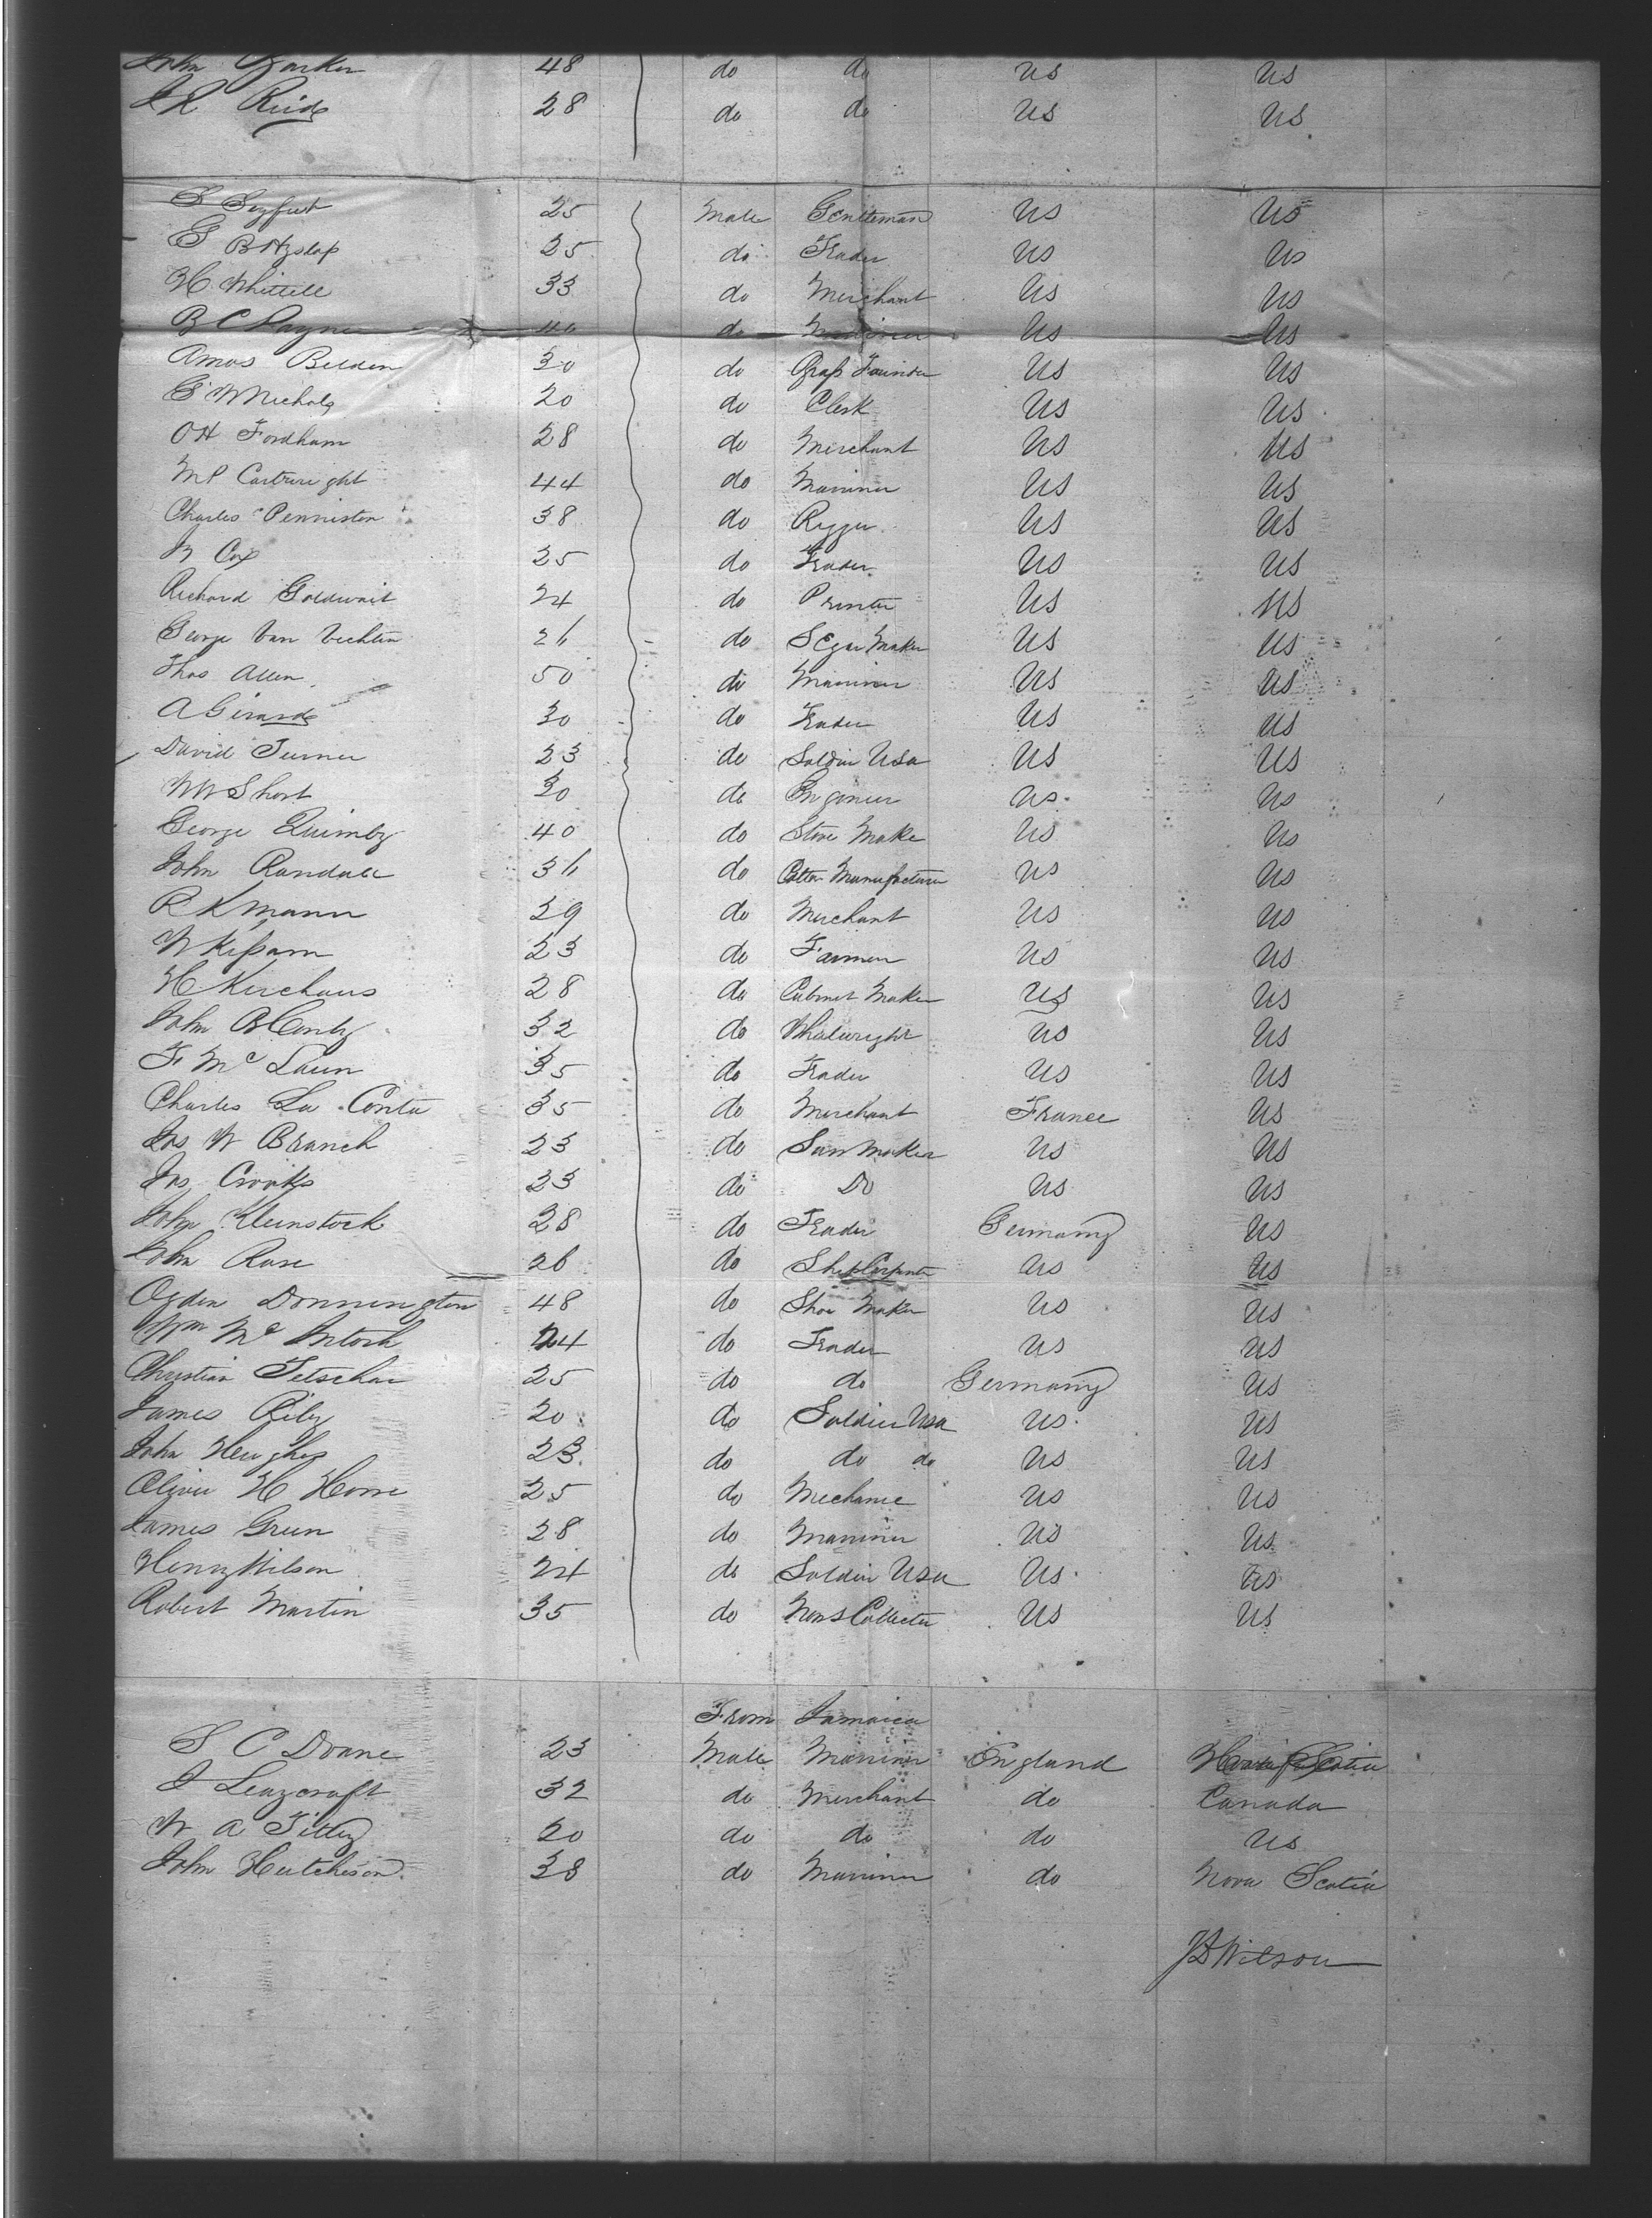 John Barker 48 do do US US
J R Reid 28 do do US US
S Seyfert 25 Male Gentleman US US
G B Hyslop 25 do Trader US US
H Whittell 33 do Merchant US US
B C Payne 40 do Mariner US US
Amos Belden 30 do Brass Founder US US
G W Nichols 20 do Clerk US US
O H Fordham 28 do Merchant US US
M P Cartwright 44 do Mariner US US
Charles Penniston 38 do Rigger US US
W Cox 25 do Trader US US
Richard Goldwait 24 do Printer US US
George Van Vechten 26 do Segar Maker US US
Thos Allen 50 do Mariner US US
A Girard 30 do Trader US US
David Turner 23 do Soldier USa US US
W W Short 30 do Engineer US US
George Quimby 40 do Stove Make US US
John Randall 36 do Cotton Manufacturer US US
R K Mann 29 do Merchant US US
W Kissam 23 do Farmer US US
H Kirchaus 28 do Cabinet Maker US US
John B Conly 32 do Whielwright US US
F Mc Laun 35 do Trader US US
Charles La Conta 35 do Merchant France US
Jas W Branch 23 do Saw Maker US US
Jas Crooks 23 do Do US US
John Kleinstock 28 do Trader Germany US
John Rose 26 do Ship Carpenter US US
Ogden Donnington 48 do Shoe Maker US US
Wm Mc Intosh 24 do Trader US US
Christian 25 do do Germany US
James Riley 20 do Soldier USa US US
John Heughes 23 do do do US US
Oliver H Horne 25 do Mechanic US US
James Green 28 do Mariner US US
Henry Wilson 24 do Soldier USa US US
Robert Martin 35 do News Collector US US
From Jamaica
S C Doane 23 Male Mariner England Nova Scotia
J Leaycraft 32 do Merchant do Canada
W A Titley 20 do do do US
John Hutcheson 38 do Mariner do Nova Scotia
J D Wilson